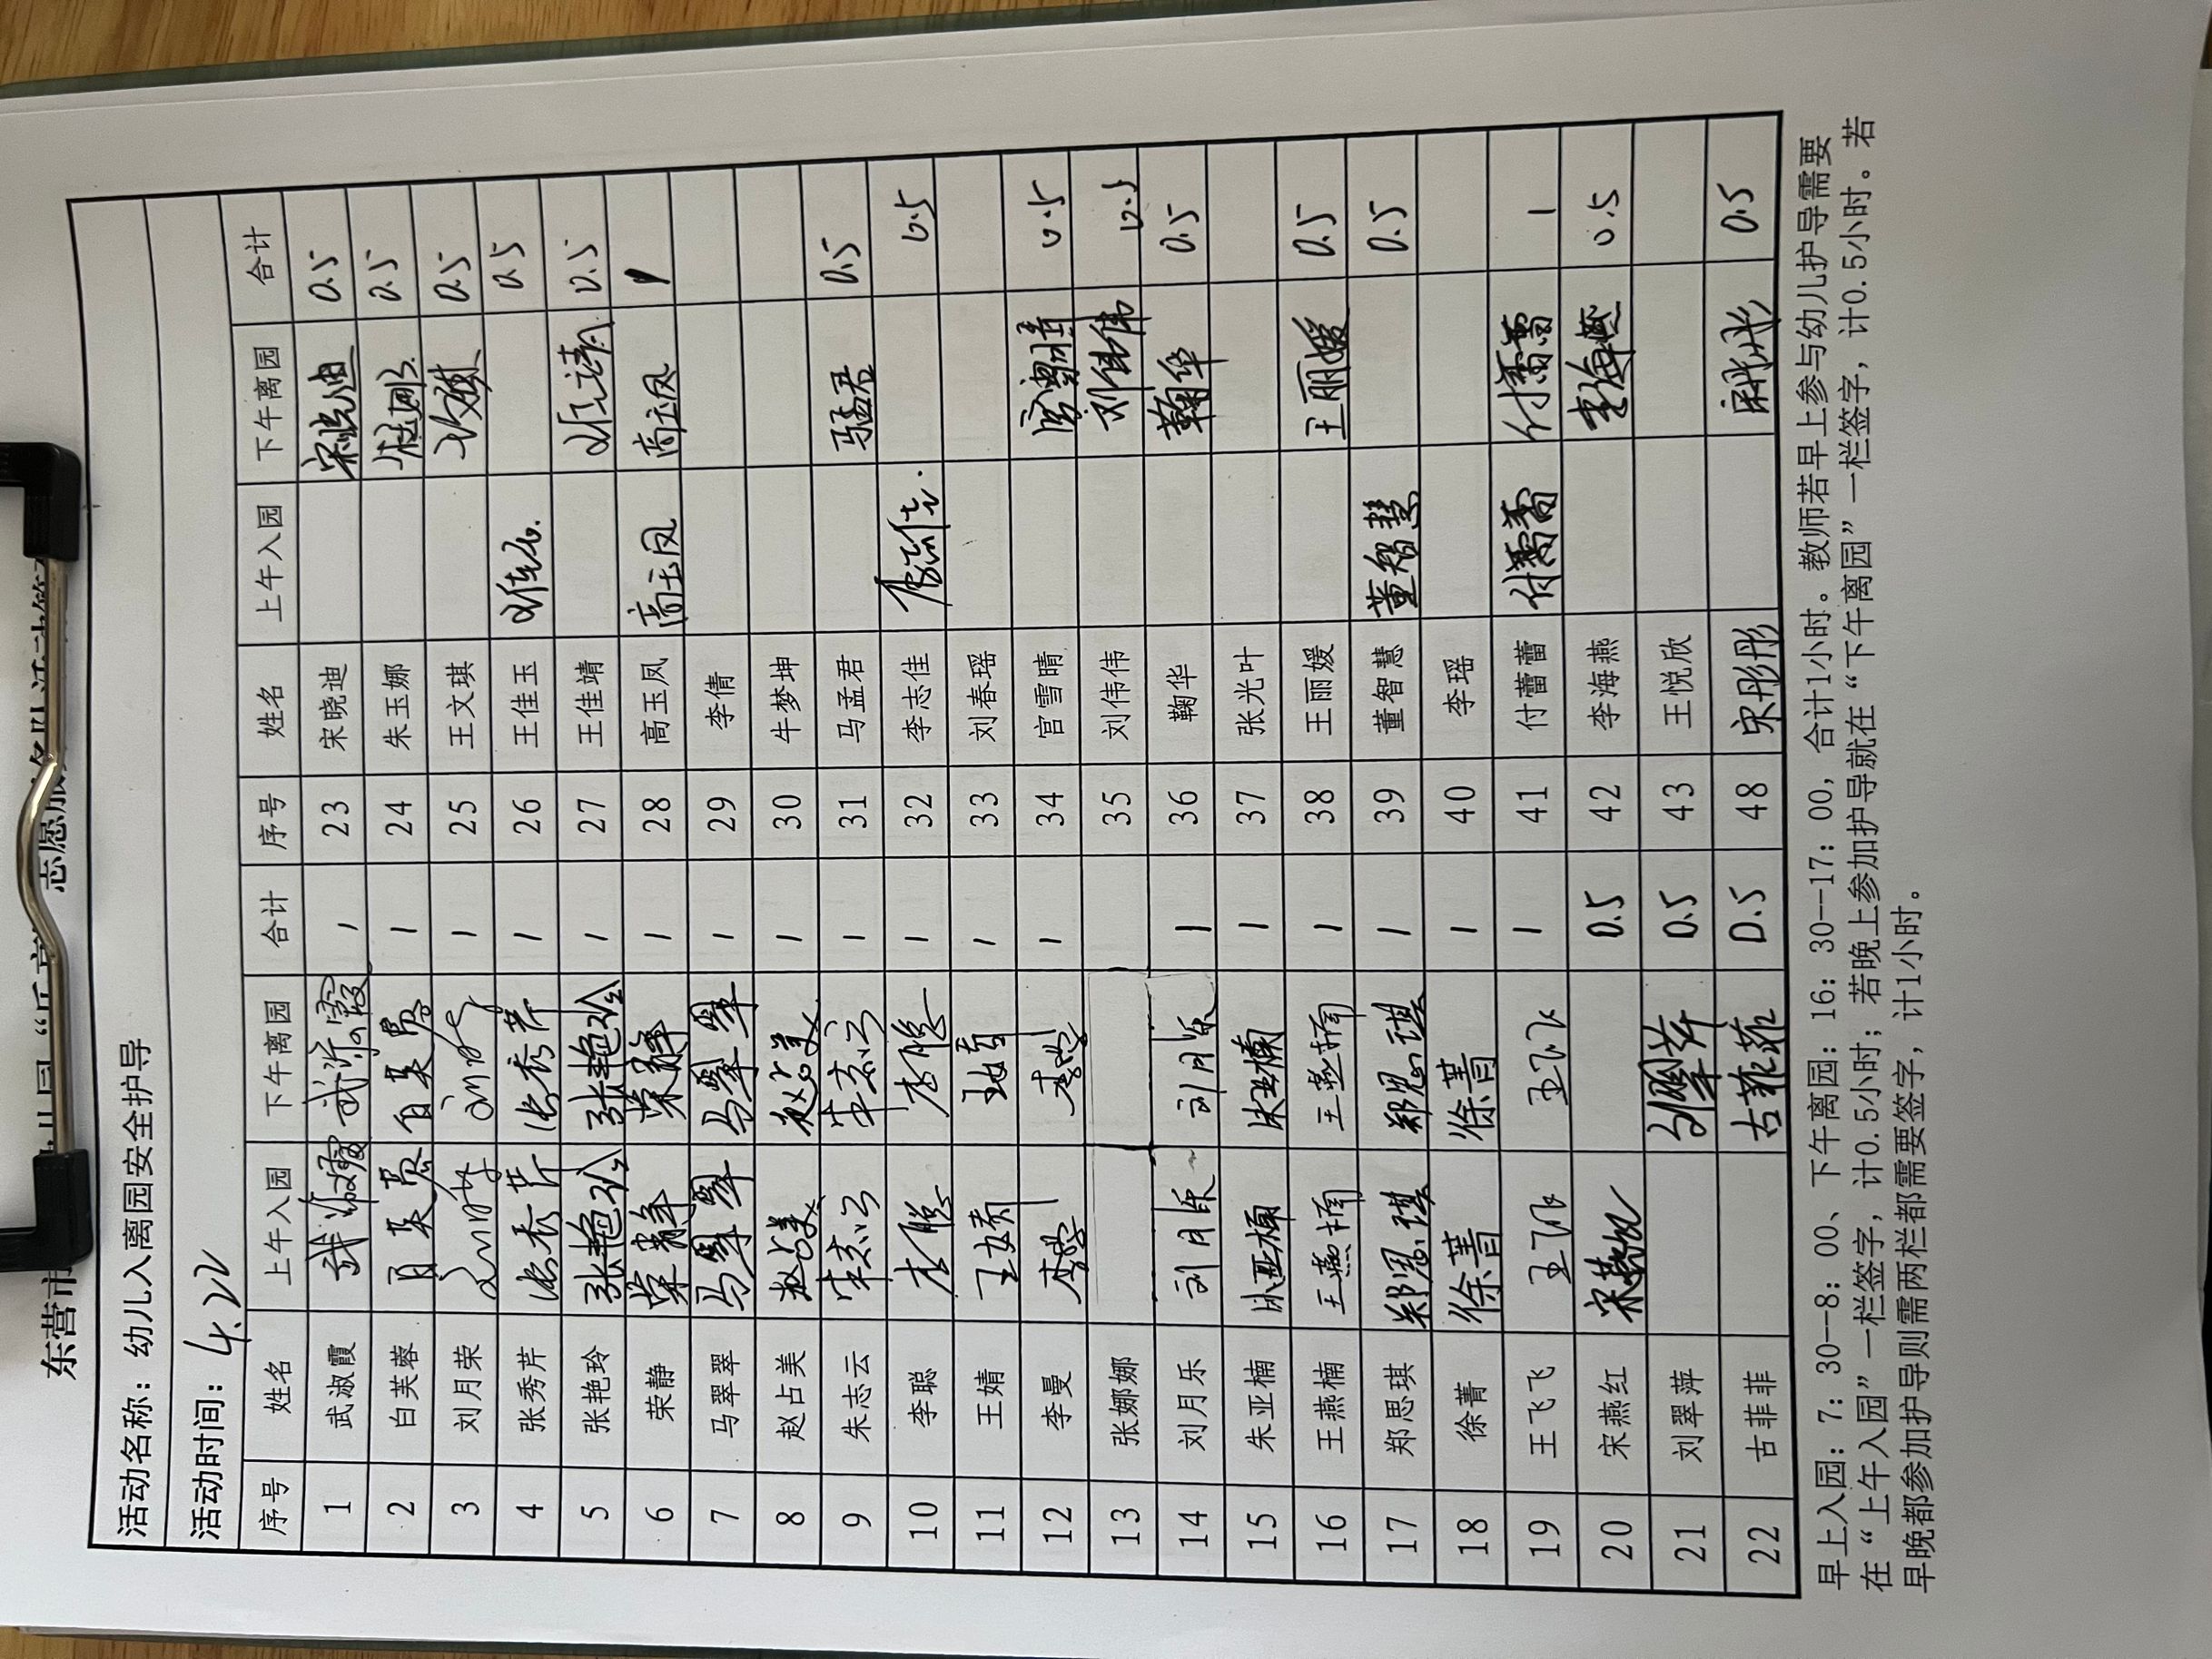 东营市
志愿服务队活动
活动名称：幼儿入离园安全护导
活动时间：4.22
序号 姓名 上午入园 下午离园 合计 序号 姓名 上午入园 下午离园 合计
1 武淑霞 武淑霞 武淑霞 1 23 宋晓迪 宋晓迪 0.5
2 白芙蓉 白芙蓉 白芙蓉 1 24 朱玉娜 0.5
3 刘月荣 1 25 王文琪 0.5
4 张秀芹 张秀芹 张秀芹 1 26 王佳玉 0.5
5 张艳玲 张艳玲 张艳玲 1 27 王佳靖 0.5
6 荣静 荣静 荣静 1 28 高玉凤 高玉凤 高玉凤 1
7 马翠翠 马翠翠 马翠翠 1 29 李倩
8 赵占美 赵占美 赵占美 1 30 牛梦坤
9 朱志云 朱志云 朱志云 1 31 马孟君 马孟君 0.5
10 李聪 李聪 李聪 1 32 李志佳 李志佳 0.5
11 王婧 王婧 王婧 1 33 刘春瑶
12 李曼 李曼 李曼 1 34 宫雪晴 宫雪晴 0.5
13 张娜娜 35 刘伟伟 刘伟伟 0.5
14 刘月乐 刘月乐 刘月乐 1 36 鞠华 鞠华 0.5
15 朱亚楠 朱亚楠 朱亚楠 1 37 张光叶
16 王燕楠 王燕楠 王燕楠 1 38 王丽媛 王丽媛 0.5
17 郑思琪 郑思琪 郑思琪 1 39 董智慧 董智慧 0.5
18 徐菁 徐菁 徐菁 1 40 李瑶
19 王飞飞 王飞飞 王飞飞 1 41 付蕾蕾 付蕾蕾 付蕾蕾 1
20 宋燕红 宋燕红 0.5 42 李海燕 李海燕 0.5
21 刘翠萍 刘翠萍 0.5 43 王悦欣
22 古菲菲 古菲菲 0.5 48 宋彤彤 宋彤彤 0.5
早上入园：7：30--8：00、下午离园：16：30--17：00，合计1小时。教师若早上参与幼儿护导需要
在“上午入园”一栏签字，计0.5小时；若晚上参加护导就在“下午离园”一栏签字，计0.5小时。若
早晚都参加护导则需两栏都需要签字，计1小时。